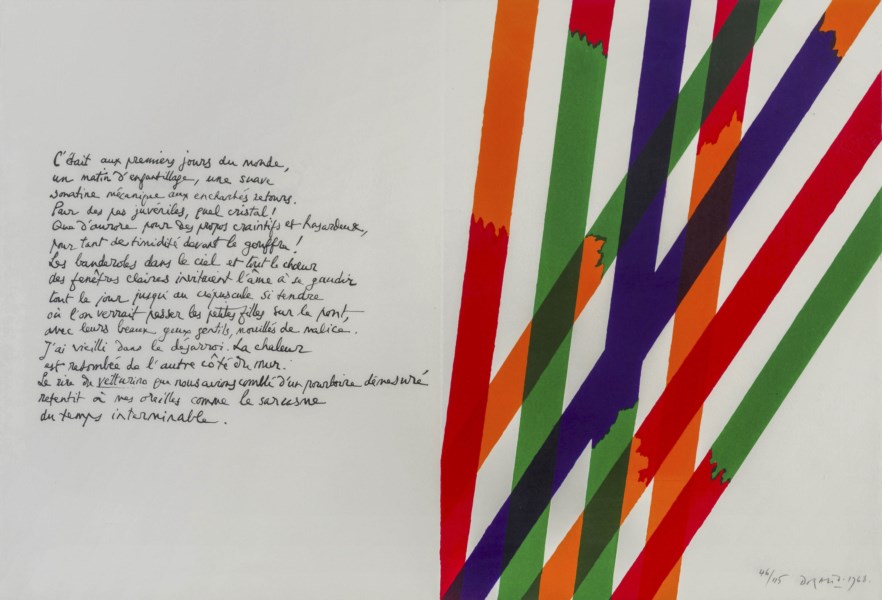 C'était aux premiers jours du monde,
un matin d'enfantillage, une suave
sonatine mécanique aux enchantés retours.
Pour des pas juvéniles, quel cristal !
Que d'aurore pour des propos craintifs et hasardeux,
pour tant de timidité devant le gouffre !
Les banderoles dans le ciel et tout le chœur
des fenêtres claires invitaient l'âme à se gaudir
tout le jour jusqu'au crépuscule si tendre
où l'on verrait passer les petites filles sur le pont,
avec leurs beaux yeux gentils, mouillés de malice.
J'ai vieilli dans le désarroi. La chaleur
est retombée de l'autre côté du mur.
Le rire du vetturino que nous avions comblé d'un pourboire démesuré
retentit à mes oreilles comme le sarcasme
du temps interminable.
46/115 1968.